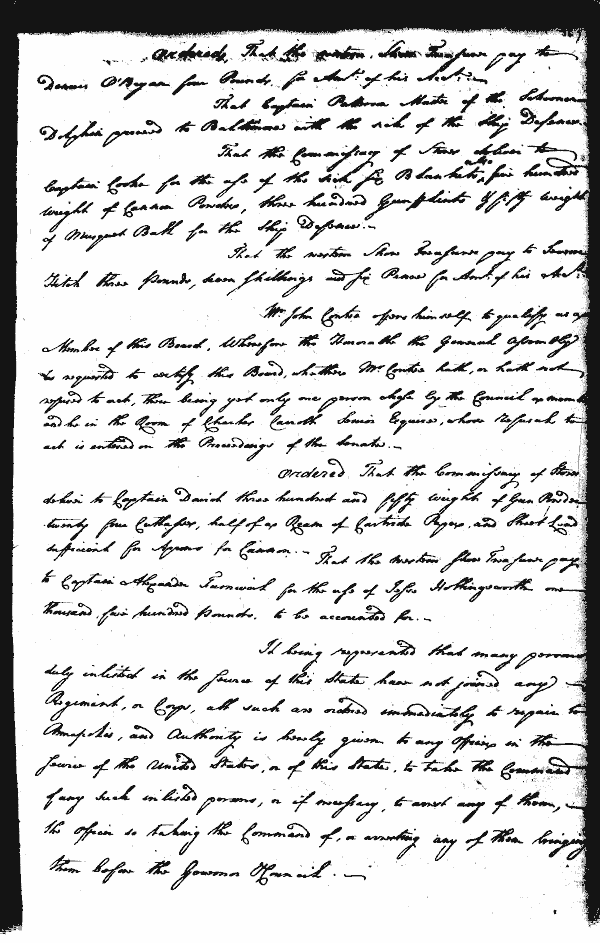 Ordered, That the western Shore Treasurer pay to
Dennis O'Bryan four Pounds, for Amt. of his Acct.—
That Captain Patterson Master of the Schooner
Dolphin proceed to Baltimore with the sick of the Ship Defence.
That the Commissary of Stores deliver to
Captain Cooke for the use of the Sick six Blankets, also five hundred
weight of Cannon Powder, three hundred Gun flints & fifty weight
of Musquet Ball for the Ship Defence.—
That the western Shore Treasurer pay to
Fitch three Pounds, seven Shillings and six Pence for Amt. of his Acct.
Mr. John Contee offers himself to qualify as a
Member of this Board, Wherefore the Honorable the General Assembly
be requested to certify this Board, whether Mr. Contee hath, or hath not
refused to act, there being yet only one person chose by the Council
and he in the Room of Charles Carroll Senior Esquire, whose refusal to
act is entered on the Proceedings of the Senate.—
Ordered That the Commissary of Stores
deliver to Captain David three hundred and fifty weight of Gun Powder
twenty four Cutlasses, half of a Ream of Cartridge Paper, and Sheet Lead
sufficient for Aprons for Cannon.— That the western Shore Treasurer pay
to Captain Alexander Furnival for the use of Jesse Hollingsworth one
thousand, five hundred Pounds, to be accounted for.—
It being represented that many persons
duly inlisted in the Service of this State have not joined any
Regiment, or Corps, all such are ordered immediately to repair to
Annapolis, and Authority is hereby given to any Officer in the
Service of the United States, or of this State, to take the Command
of any such inlisted persons, or if necessary, to arrest any of them,
the Officer so taking the Command of, or arresting any of them bringing
them before the Governor & Council.—